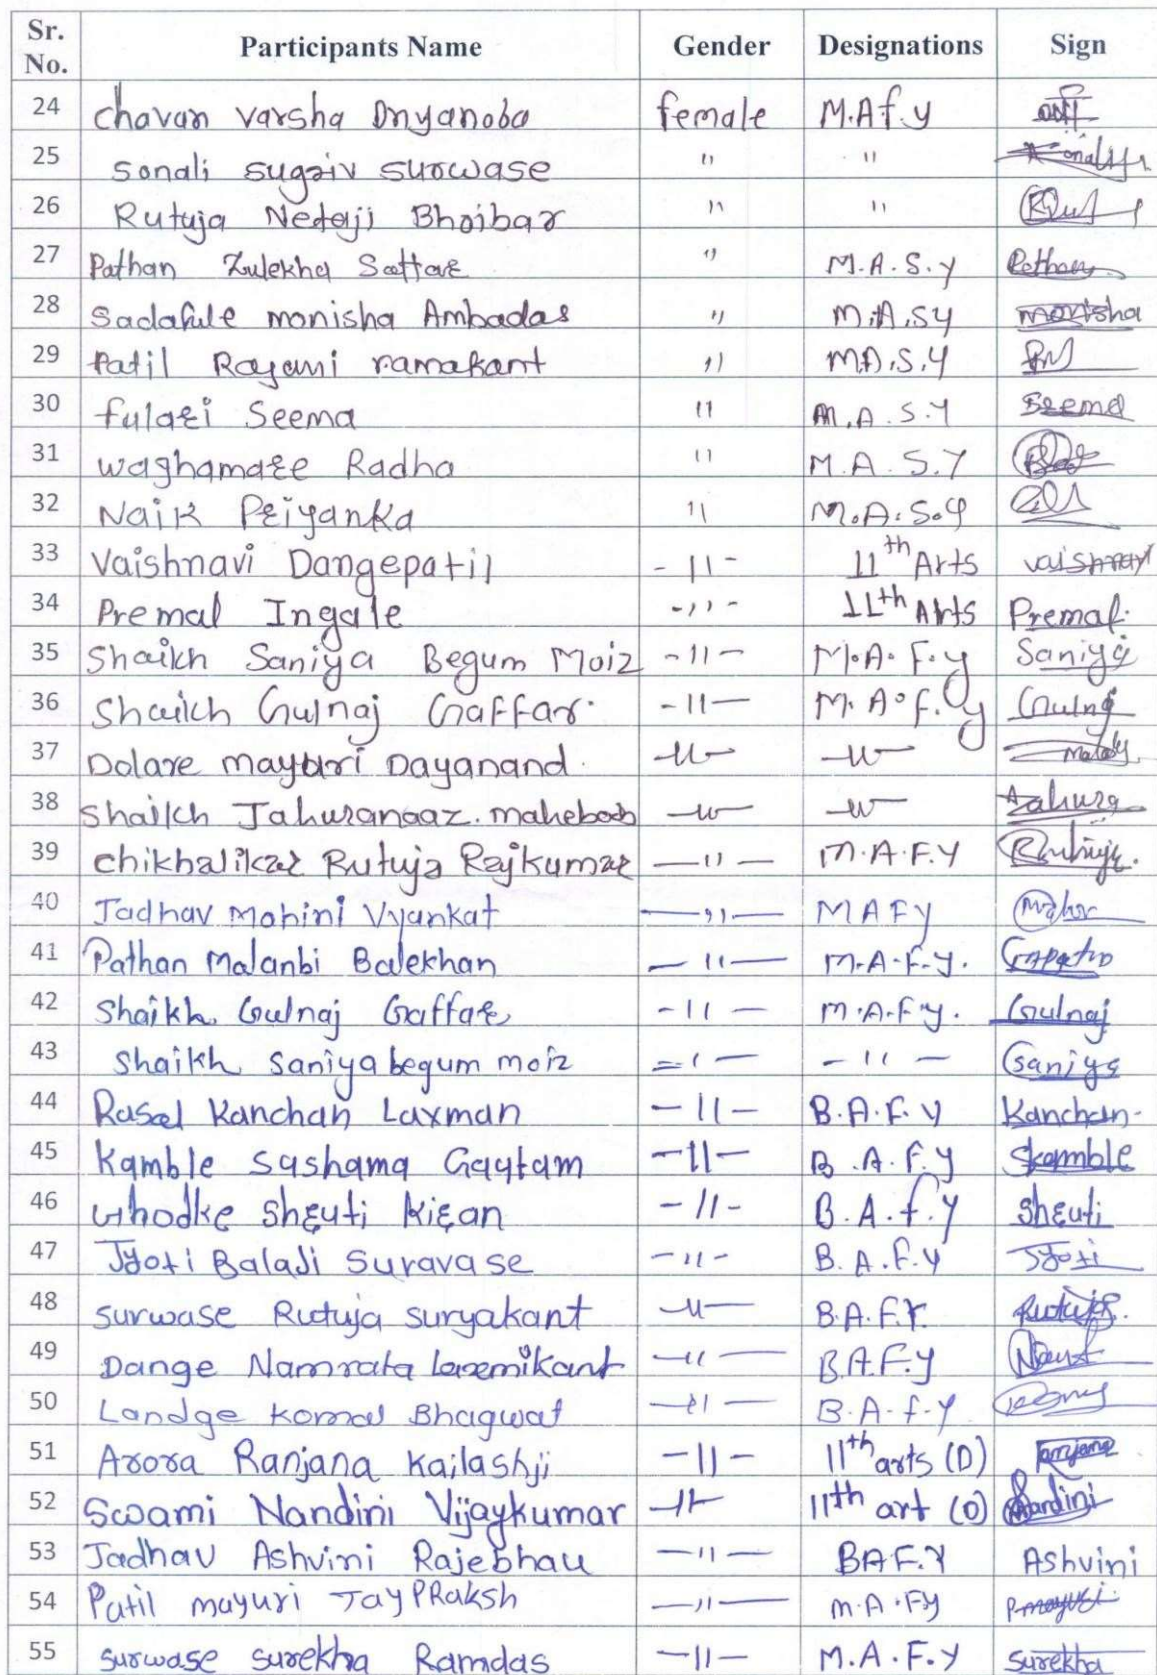 Sr. No. Participants Name Gender Designations Sign
24 chavan varsha Dnyanoba female M.A f.y
25 Sonali sugriv surwase " "
26 Rutuja Netaji Bhoibar " "
27 Pathan Zulekha Sattar " M.A.S.y Pathan
28 Sadafule monisha Ambadas " M.A.SY monisha
29 Patil Rajani ramakant " M.A.S.Y
30 fulari Seema " M.A.S.Y Seema
31 waghamare Radha " M.A.S.Y
32 Naik Priyanka " M.A.S.Y
33 Vaishnavi Dangepatil -11- 11th Arts vaishnavi
34 Premal Ingale -11- 11th Arts Premal.
35 Shaikh Saniya Begum Moiz -11- M.A.F.y Saniya
36 Shaikh Gulnaj Gaffar. -11- M.A.f.y Gulnaj
37 Dolare mayuri Dayanand. -11- -11-
38 Shaikh Jahuranaaz. maheboob -11- -11- Zahura
39 Chikhalikar Rutuja Rajkumar -11- M.A.F.Y Rutuja.
40 Jadhav Mohini Vyankat -11- MAFY
41 Pathan Malanbi Balekhan -11- M.A.F.y.
42 Shaikh Gulnaj Gaffar -11- M.A.F.y. Gulnaj
43 Shaikh Saniya begum moiz -11- -11- Saniya
44 Rasal Kanchan Laxman -11- B.A.F.Y Kanchan
45 Kamble Sashama Gaytam -11- B.A.F.y Skamble
46 Ghodke Shruti Kiran -11- B.A.f.y Shruti
47 Jyoti Balaji Suravase -11- B.A.F.Y Jyoti
48 surwase Rutuja suryakant -11- B.A.F.Y. Rutuja.
49 Dange Namrata Laxmikant -11- B.A.F.Y
50 Landge Komal Bhagwat -11- B.A-f-y
51 Arora Ranjana Kailashji -11- 11th arts (D) Ranjana
52 Swami Nandini Vijaykumar -11- 11th art (D) Nandini
53 Jadhav Ashvini Rajebhau -11- BAF.Y Ashvini
54 Patil mayuri JayPRaksh -11- M.A.Fy P.mayuri
55 surwase surekha Ramdas -11- M.A.F.Y surekha